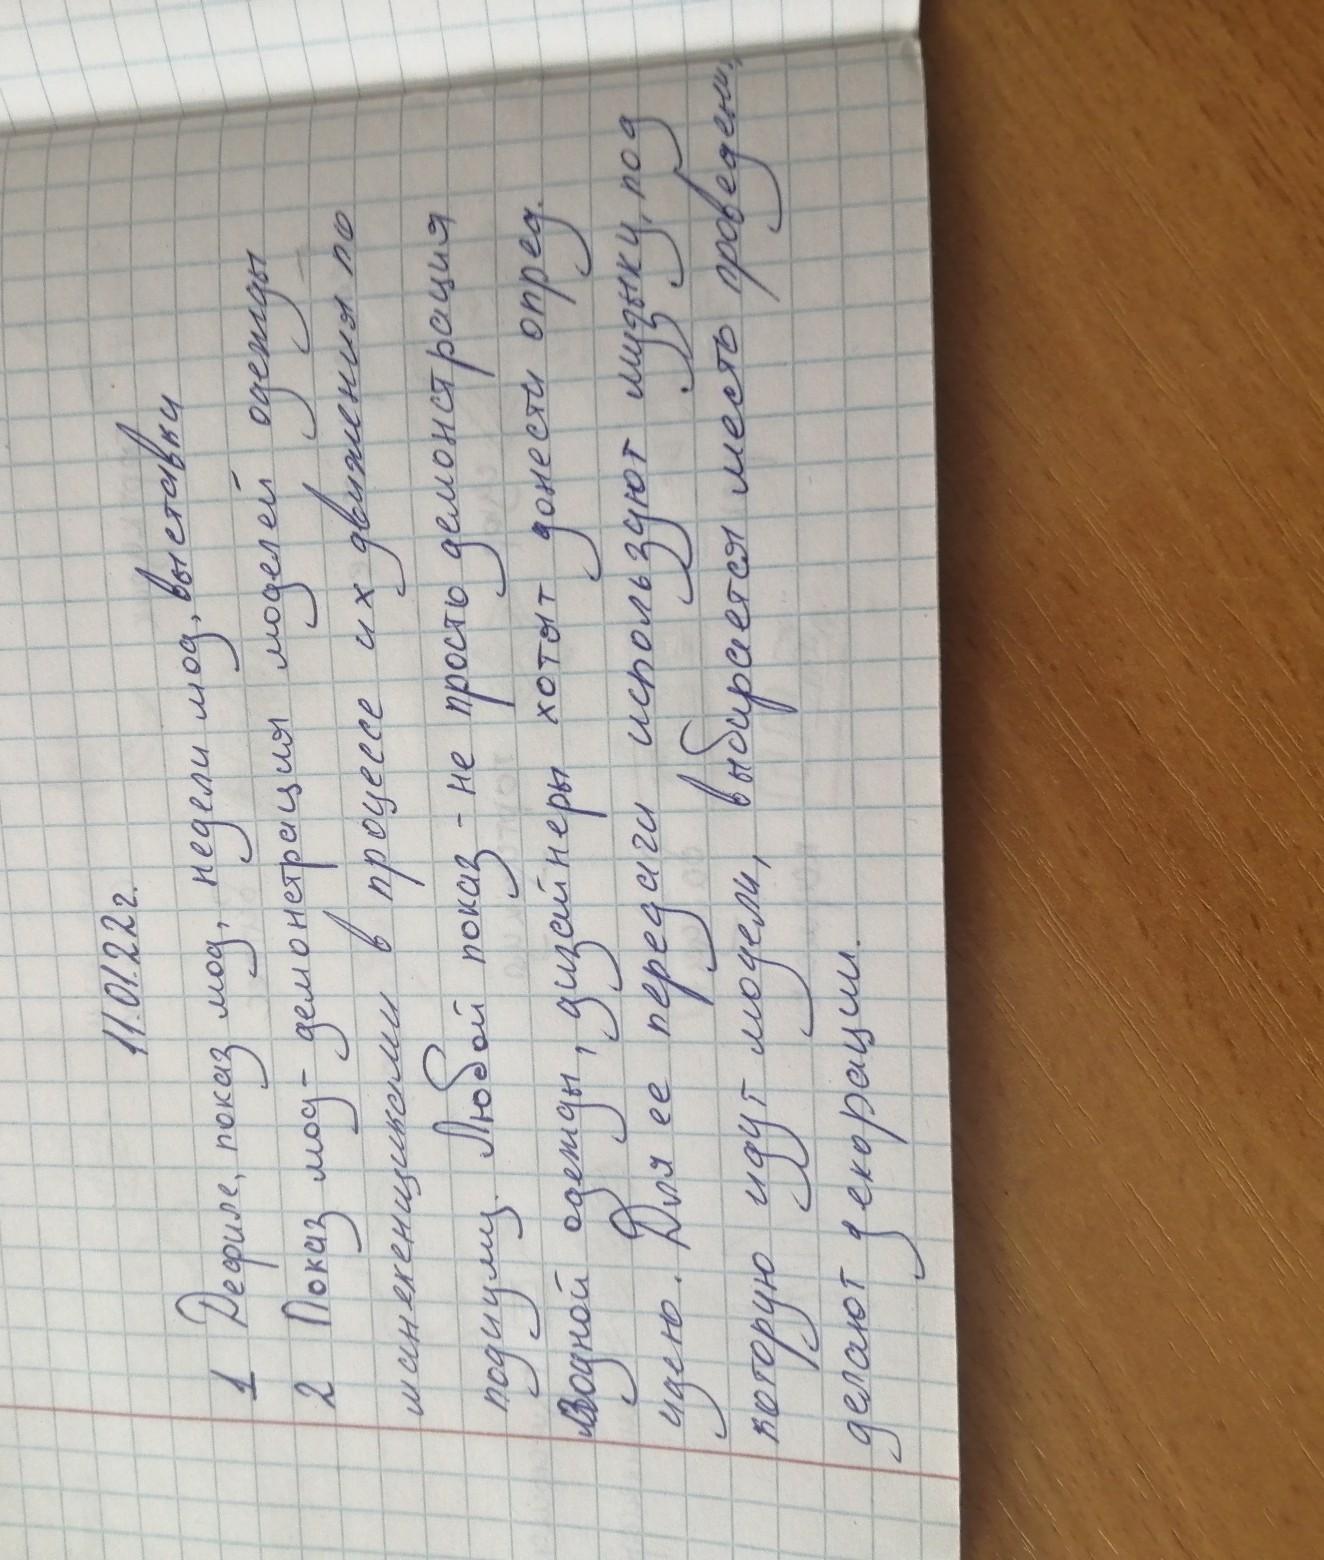 11.01.22г.
1 Дефиле, показ мод, недели мод, выставки
2 Показ мод - демонстрация моделей одежды
манекенщиками в процессе их движения по
подиуму. Любой показ - не просто демонстрация
модной одежды, дизайнеры хотят донести опред.
идею. Для ее передачи используют музыку, под
которую идут модели, выбирается место проведени,
делают декорации.